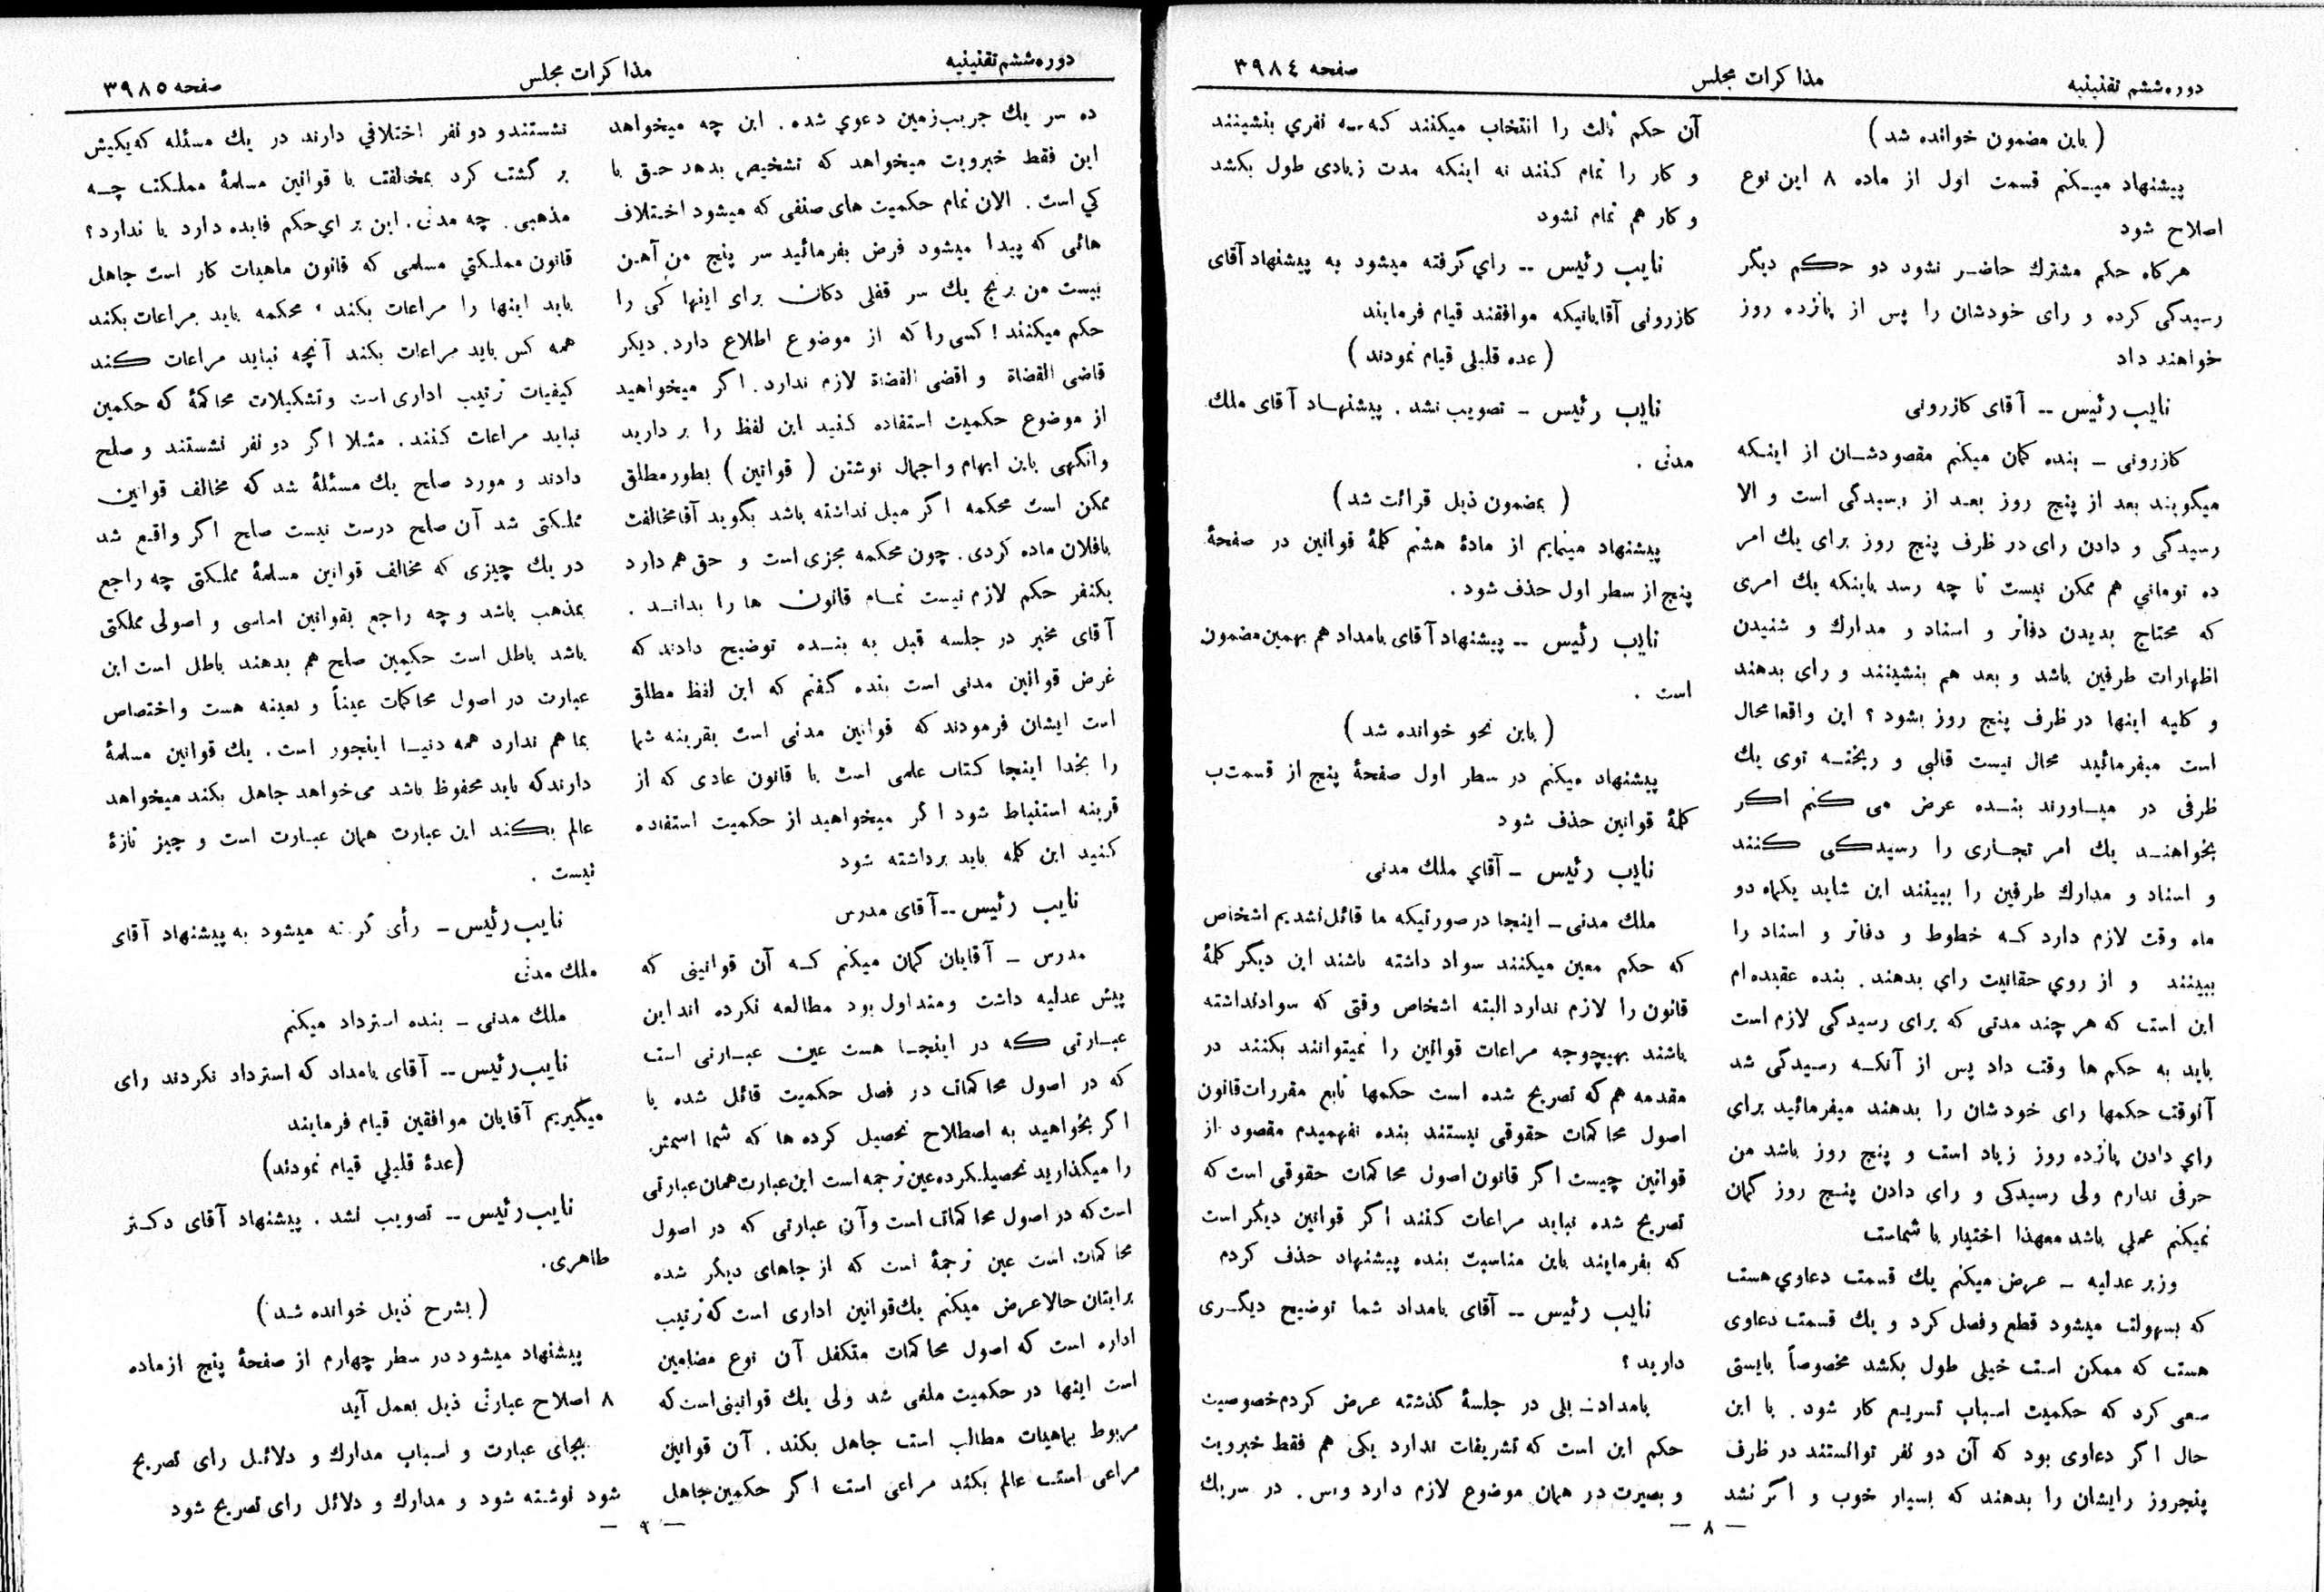 دوره ششم تقنینیه
مذاکرات مجلس
صفحه ۳۹۸٤
(باین مضمون خوانده شد)
پیشنهاد میکنم قسمت اول از ماده ۸ این نوع
اصلاح شود
هرگاه حکم مشترك حاضر نشود دو حکم دیگر
رسیدگی کرده و رای خودشان را پس از پانزده روز
خواهند داد
نایب رئیس -- آقای کازرونی
کازرونی - بنده گمان میکنم مقصودشان از اینکه
میگویند بعد از پنج روز بعد از رسیدگی است و الا
رسیدگی و دادن رای در ظرف پنج روز برای یك امر
ده تومانی هم ممکن نیست تا چه رسد باینکه یك امری
که محتاج بدیدن دفاتر و اسناد و مدارك و شنیدن
اظهارات طرفین باشد و بعد هم بنشینند و رای بدهند
و کلیه اینها در ظرف پنج روز بشود ؟ این واقعا محال
است میفرمائید محال نیست قالبی و ریخته توی یك
ظرفی در میاورند بنده عرض می کنم اگر
بخواهند یك امر تجاری را رسیدگی کنند
و اسناد و مدارك طرفین را ببینند این شاید یکماه دو
ماه وقت لازم دارد که خطوط و دفاتر و اسناد را
ببینند و از روي حقانیت راي بدهند . بنده عقیده ام
این است که هر چند مدتی که برای رسیدگی لازم است
باید به حکم ها وقت داد پس از آنکه رسیدگی شد
آنوقت حکمها رای خودشان را بدهند میفرمائید برای
راي دادن پانزده روز زیاد است و پنج روز باشد من
حرفی ندارم ولی رسیدگی و رای دادن پنج روز گمان
نمیکنم عملی باشد معهذا اختیار با شماست
وزیر عدلیه - عرض میکنم یك قسمت دعاوي هست
که بسهولت میشود قطع و فصل کرد و یك قسمت دعاوی
هست که ممکن است خیلی طول بکشد مخصوصاً بایستی
سعی کرد که حکمیت اسباب تسریع کار شود . با این
حال اگر دعاوی بود که آن دو نفر توانستند در ظرف
پنجروز رایشان را بدهند که بسیار خوب و اگر نشد
آن حکم ثالث را انتخاب میکنند که سه نفري بنشینند
و کار را تمام کنند نه اینکه مدت زیادی طول بکشد
و کار هم تمام نشود
نایب رئیس -- راي گرفته میشود به پیشنهاد آقای
کازرونی آقایانیکه موافقند قیام فرمایند
(عده قلیلی قیام نمودند)
نایب رئیس - تصویب نشد . پیشنهاد آقای ملك
مدنی .
(بمضمون ذیل قرائت شد)
پیشنهاد مینمایم از مادهٔ هشتم کلمهٔ قوانین در صفحهٔ
پنج از سطر اول حذف شود .
نایب رئیس -- پیشنهاد آقای بامداد هم بهمین مضمون
است .
(باین نحو خوانده شد)
پیشنهاد میکنم در سطر اول صفحهٔ پنج از قسمت ب
کلمهٔ قوانین حذف شود
نایب رئیس - آقاي ملك مدنی
ملك مدنی - اینجا در صورتیکه ما قائل نشدیم اشخاص
که حکم معین میکنند سواد داشته باشند این دیگر کلمهٔ
قانون را لازم ندارد البته اشخاص وقتی که سواد نداشته
باشند بهیچوجه مراعات قوانین را نمیتوانند بکنند در
مقدمه هم که تصریح شده است حکمها تابع مقررات قانون
اصول محاکمات حقوقی نیستند بنده نفهمیدم مقصود از
قوانین چیست اگر قانون اصول محاکمات حقوقی است که
تصریح شده نباید مراعات کنند اگر قوانین دیگر است
که بفرمایند باین مناسبت بنده پیشنهاد حذف کردم
نایب رئیس -- آقای بامداد شما توضیح دیگری
دارید ؟
بامداد - بلی در جلسهٔ گذشته عرض کردم خصوصیت
حکم این است که تشریفات ندارد یکی هم فقط خبرویت
و بصیرت در همان موضوع لازم دارد و بس . در سر یك
— ۸ —
دوره ششم تقنینیه
مذاکرات مجلس
صفحه ۳۹۸٥
ده سر یك جریب زمین دعوي شده . این چه میخواهد
این فقط خبرویت میخواهد که تشخیص بدهد حق با
کي است . الان تمام حکمیت های صنفی که میشود اختلاف
هائی که پیدا میشود فرض بفرمائید سر پنج من آهن
بیست من برنج یك سر قفلی دکان برای اینها کی را
حکم میکنند ! کسی را که از موضوع اطلاع دارد . دیگر
قاضی القضاة و اقضی القضاة لازم ندارد . اگر میخواهید
از موضوع حکمیت استفاده کنید این لفظ را بردارید
وانگهی باین ابهام و اجمال نوشتن ( قوانین ) بطور مطلق
ممکن است محکمه اگر میل نداشته باشد بگوید آقا مخالفت
بافلان ماده کردی . چون محکمه مجزی است و حق هم دارد
یکنفر حکم لازم نیست تمام قانون ها را بداند .
آقای مخبر در جلسه قبل به بنده توضیح دادند که
غرض قوانین مدنی است بنده گفتم که این لفظ مطلق
است ایشان فرمودند که قوانین مدنی است بقرینه شما
را بخدا اینجا کتاب علمی است یا قانون عادی که از
قرینه استنباط شود اگر میخواهید از حکمیت استفاده
کنید این کلمه باید برداشته شود
نایب رئیس -- آقای مدرس
مدرس - آقایان گمان میکنم که آن قوانینی که
پیش عدلیه داشت و متداول بود مطالعه نکرده اند این
عبارتی که در اینجا هست عین عبارتی است
که در اصول محاکمات در فصل حکمیت قائل شده یا
اگر بخواهید به اصطلاح تحصیل کرده ها که شما اسمش
را میگذارید تحصیلکرده عین ترجمه است این عبارت همان عبارتی
است که در اصول محاکمات است و آن عبارتی که در اصول
محاکمات است عین ترجمهٔ است که از جاهای دیگر شده
برایتان حالا عرض میکنم یك قوانین اداری است که ترتیب
اداره است که اصول محاکمات متکفل آن نوع مضامین
است اینها در حکمیت ملغی شد ولی یك قوانینی است که
مربوط بماهیات مطالب است جاهل بکند . آن قوانین
مراعی است عالم بکند مراعی است اگر حکمین جاهل
نشستند و دو نفر اختلافي دارند در یك مسئله که یکیش
بر گشت کرد بمخالفت با قوانین مسلمهٔ مملکت چه
مذهبی . چه مدنی . این برای حکم فایده دارد یا ندارد ؟
قانون مملکتي مسلمی که قانون ماهیات کار است جاهل
باید اینها را مراعات بکند ، محکمه باید مراعات بکند
همه کس باید مراعات بکند آنچه نباید مراعات کند
کیفیات ترتیب اداری است و تشکیلات محاکمهٔ که حکمین
نباید مراعات کنند . مثلا اگر دو نفر نشستند و صلح
دادند و مورد صلح یك مسئلهٔ شد که مخالف قوانین
مملکتی شد آن صلح درست نیست صلح اگر واقع شد
در یك چیزی که مخالف قوانین مسلمهٔ مملکتی چه راجع
بمذهب باشد و چه راجع بقوانین اساسی و اصولی مملکتی
باشد باطل است حکمین صلح هم بدهند باطل است این
عبارت در اصول محاکمات عیناً و بعینه هست و اختصاص
بما هم ندارد همه دنیا اینجور است . یك قوانین مسلمهٔ
دارند که باید محفوظ باشد می خواهد جاهل بکند میخواهد
عالم بکند این عبارت همان عبارت است و چیز تازهٔ
نیست .
نایب رئیس - رأی گرفته میشود به پیشنهاد آقای
ملك مدنی
ملك مدنی - بنده استرداد میکنم
نایب رئیس -- آقای بامداد که استرداد نکردند رای
میگیریم آقایان موافقین قیام فرمایند
(عدهٔ قلیلي قیام نمودند)
نایب رئیس -- تصویب نشد . پیشنهاد آقای دکتر
طاهری .
(بشرح ذیل خوانده شد)
پیشنهاد میشود در سطر چهارم از صفحهٔ پنج از ماده
۸ اصلاح عبارتی ذیل بعمل آید
بجای عبارت و اسباب مدارك و دلائل رای تصریح
شود نوشته شود و مدارك و دلائل رای تصریح شود
— ۹ —